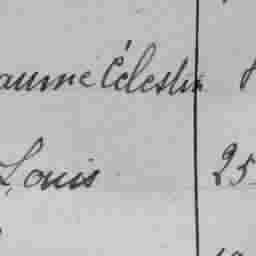 aume Célestin
Louis 25